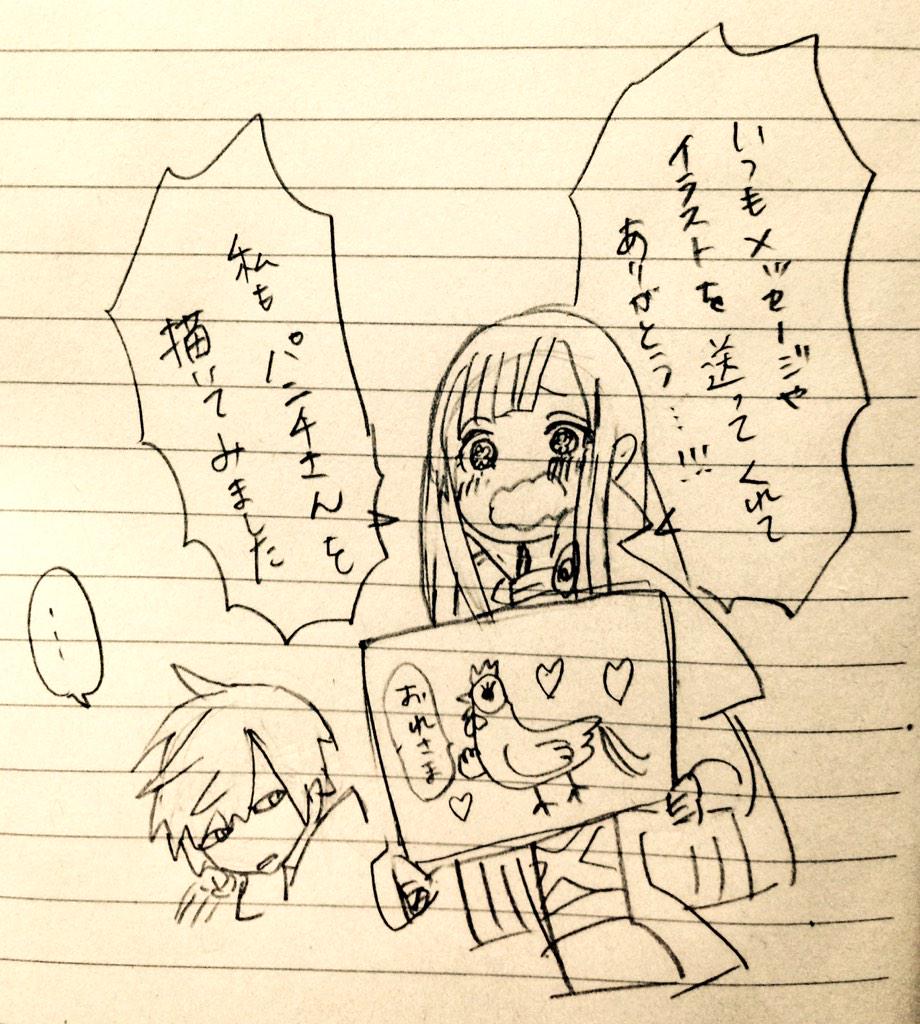 いつもメッセージや
イラストを送ってくれて
ありがとう…!!!
私も
パンチさんを
描いてみました
おれさま
…